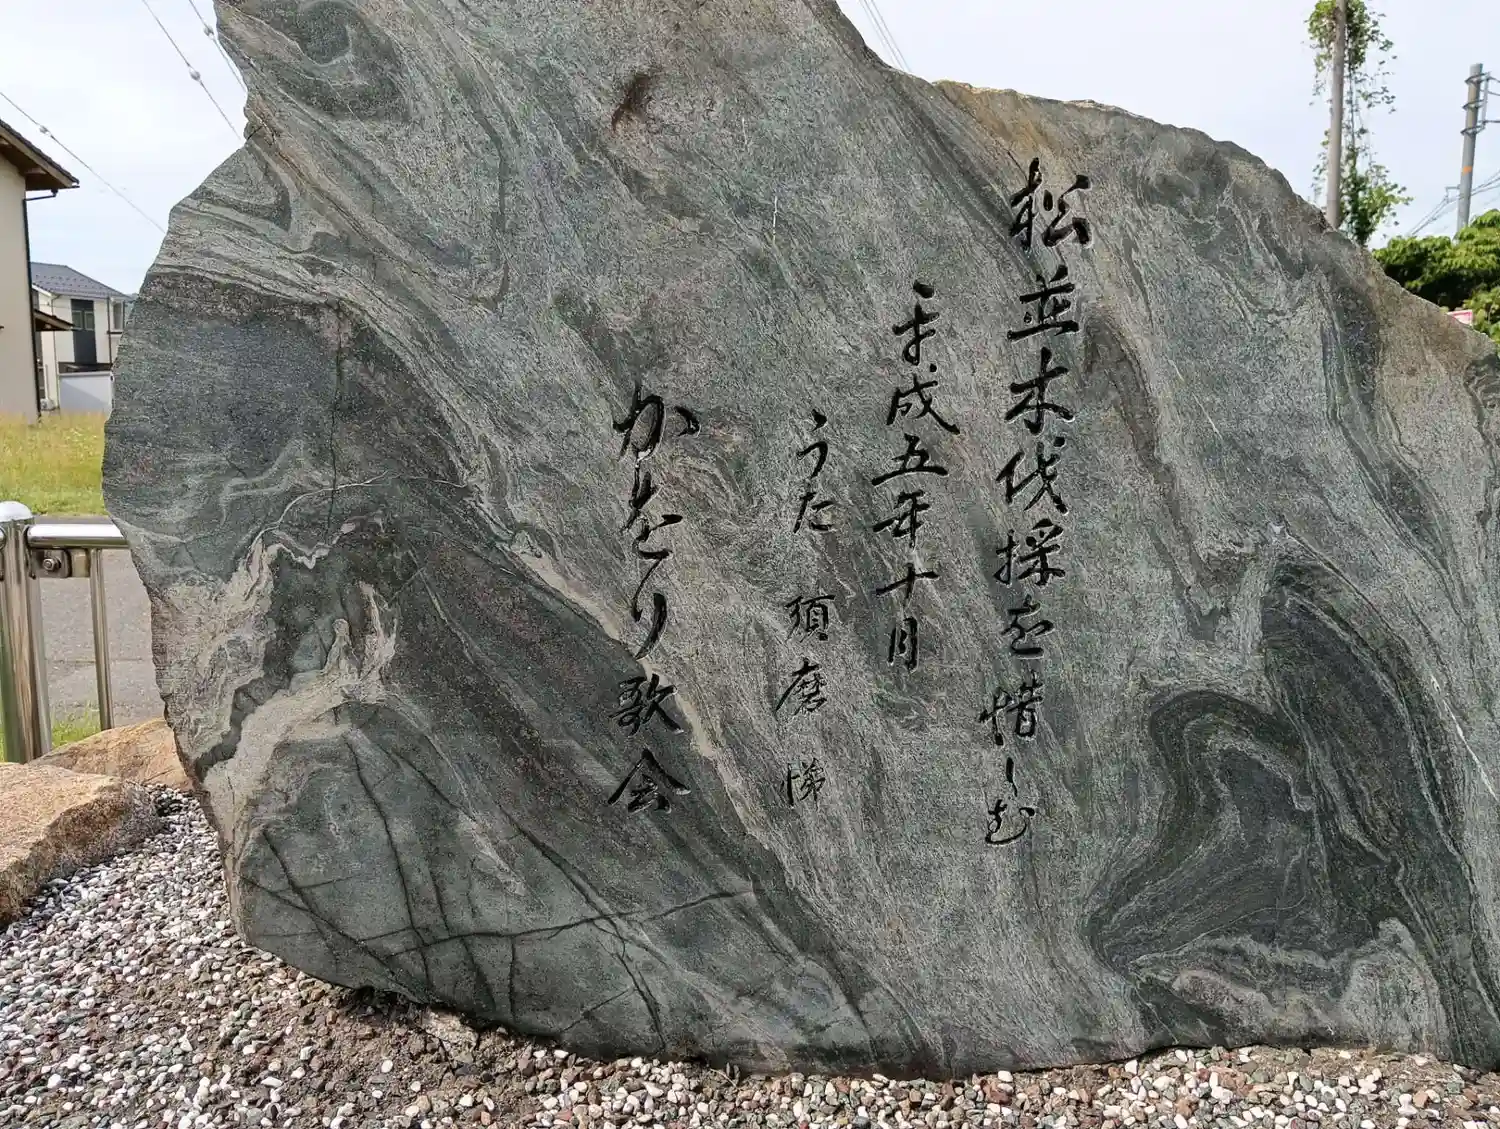 松並木伐採を惜しむ
平成五年十月
うた 須磨悌
かをり歌会